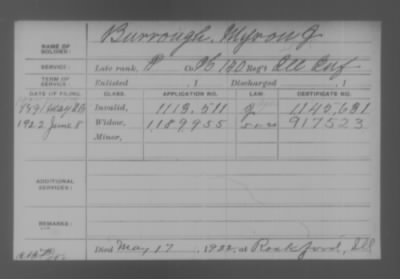 NAME OF SOLDIER: Burrough, Myron J
SERVICE: Late rank, P Co. 140 Reg't Ill Inf
TERM OF SERVICE: Enlisted , 1 Discharged , 1
DATE OF FILING. CLASS. APPLICATION NO. LAW. CERTIFICATE NO.
1891 Invalid, 1113.511 1142.631
1922 June 8 Widow, 1,189,955 917523
Minor,
ADDITIONAL SERVICES:
REMARKS:
Died May 17, 1922, at Rockford, Ill